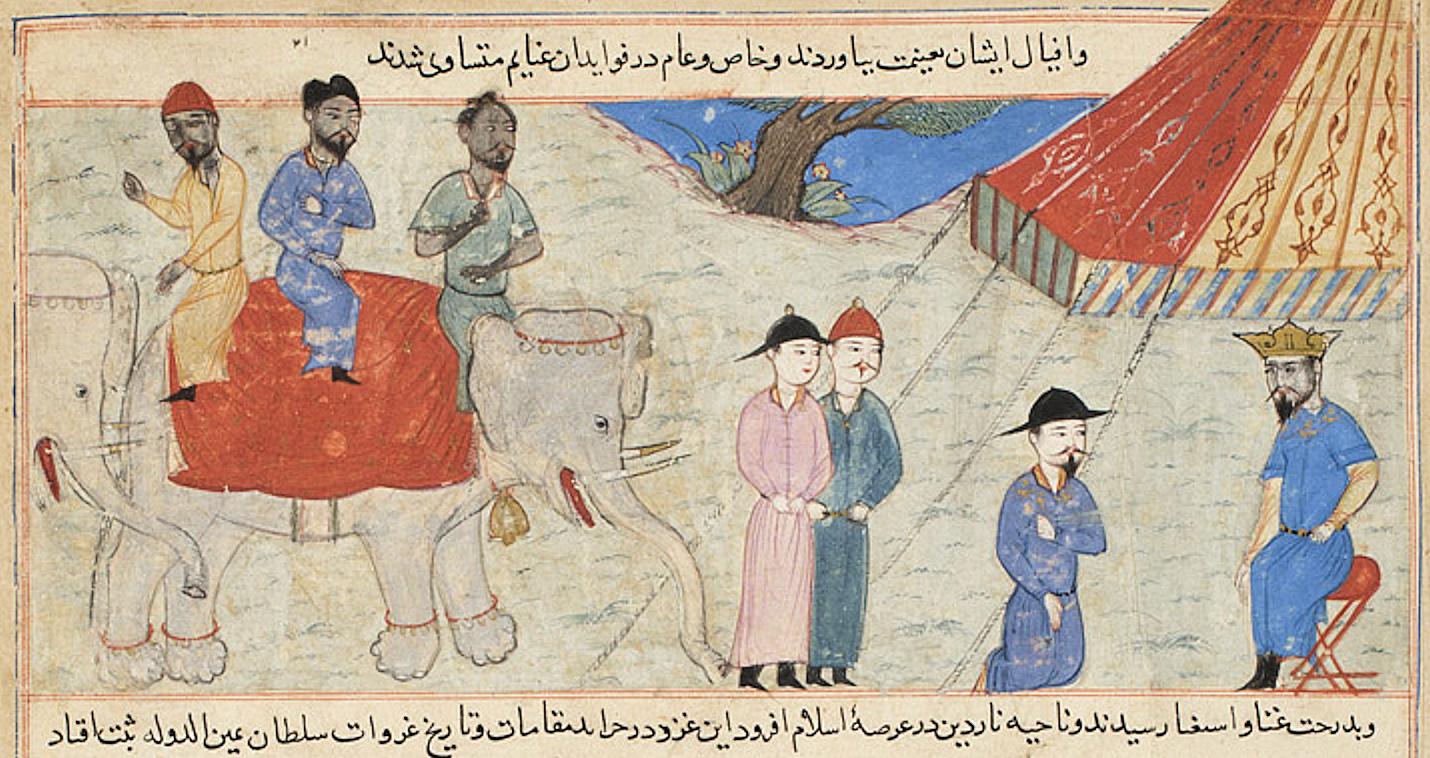 وافیال ایشان بغنیمت بیاوردند وخاص وعام در فواید ان غنایم متساوی شدند
وبدرجت غنا واستغنا رسیدند وناحیه ناردین در عرصهٔ اسلام افزود این غزو در جراید مقامات وتاریخ غزوات سلطان یمین الدوله ثبت افتاد